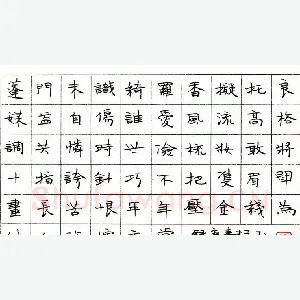 蓬門未識綺羅香擬托良
媒益自傷誰愛風流高格
調共憐時世儉梳妝敢將
十指誇針巧不把雙眉鬥
畫長苦恨年年壓金綫為